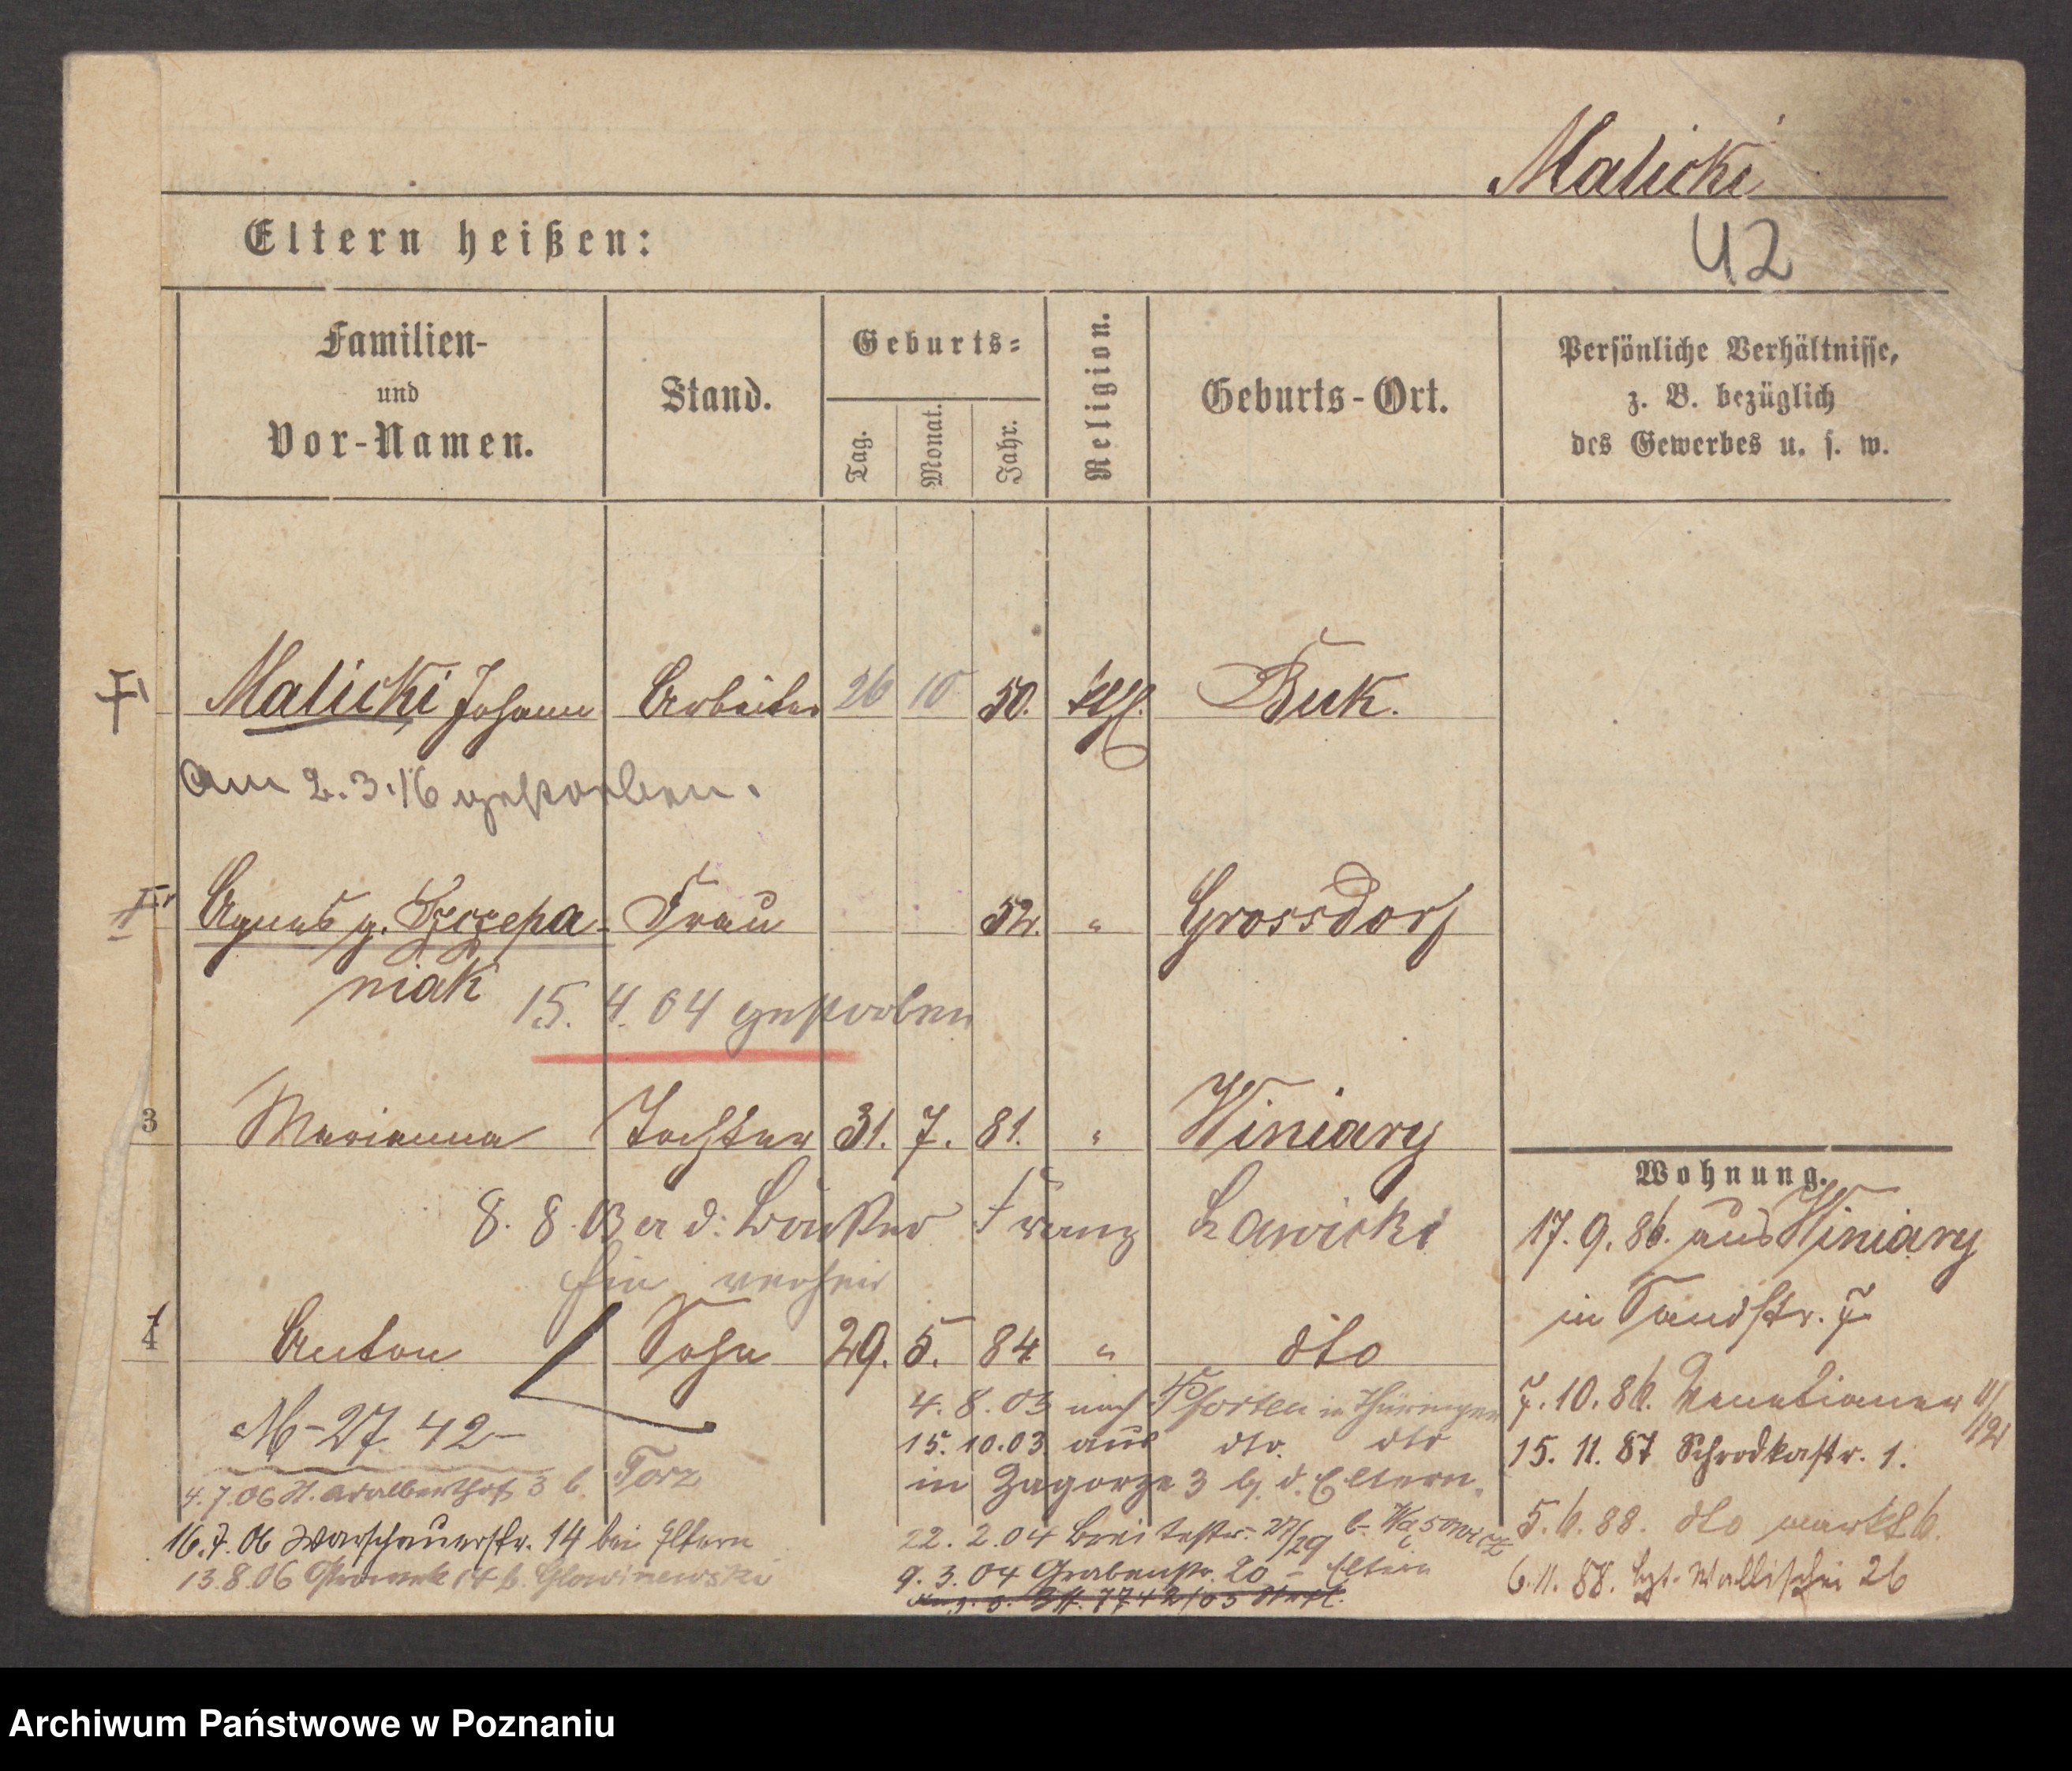 Malicki
42
Eltern heißen:
Familien-
und
Vor-Namen.
Stand.
Geburts-
Tag.
Monat.
Jahr.
Religion.
Geburts-Ort.
Persönliche Verhältnisse,
z. B. bezüglich
des Gewerbes u. s. w.
Malicki Johann Arbeiter 26 10 50. kth. Buk.
am 2.3.16 gestorben.
Agnes g. Szczepa- Frau 52. " Grossdorf
niak
15. 4. 04 gestorben
3 Marianna Tochter 31. 7. 81. " Winiary
8. 8. 03 a d. Franz Lawicki
hier verheir
4 Anton Sohn 29. 5. 84 " dto
M-27. 42-
4.7.06 St. Adalberthof 3 b. Torz
16.7.06 Warschauerstr. 14 bei Eltern
13.8.06 14 b. Glowinewski
4. 8. 03 nach Pforten in Thüringen
15. 10. 03 aus dto. dto
in Zagorze 3 b. d. Eltern.
22. 2. 04 Breitestr. 27/29 b.
9. 3. 04 Grabenstr. 20 - Eltern
7742/05
Wohnung.
17. 9. 86. aus Winiary
in Sandstr. 7.
7. 10. 86. Venetianer 11/12
15. 11. 87 Schrodkastr. 1.
5. 6. 88. dto markt 6.
6. 11. 88. Wallischei 26
Archiwum Państwowe w Poznaniu